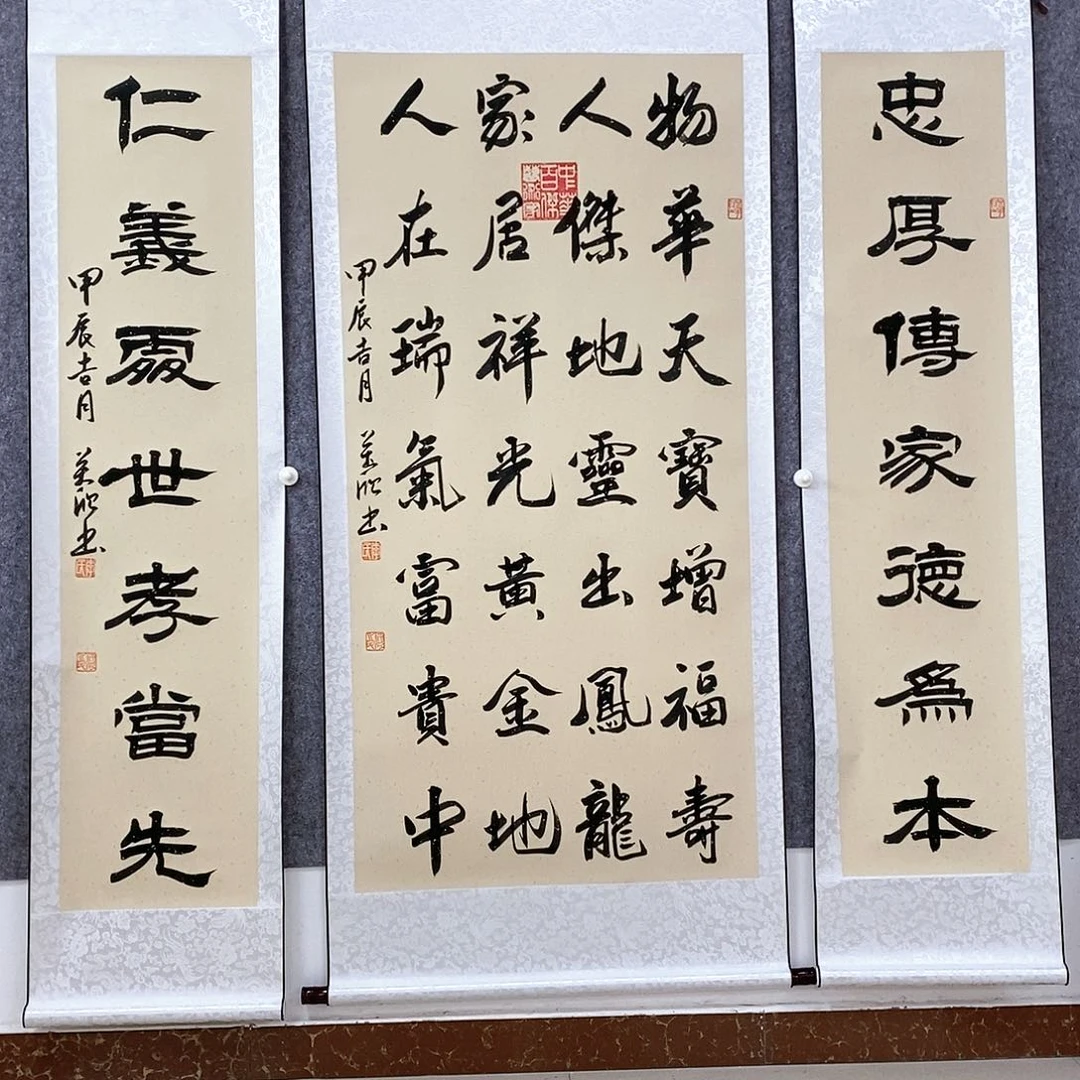 忠厚傳家德爲本
物華天寶增福壽
人傑地靈出鳳龍
中華百傑藝術家
家居祥光黃金地
人在瑞氣富貴中
甲辰吉月 书
仁義處世孝當先
甲辰吉月 书